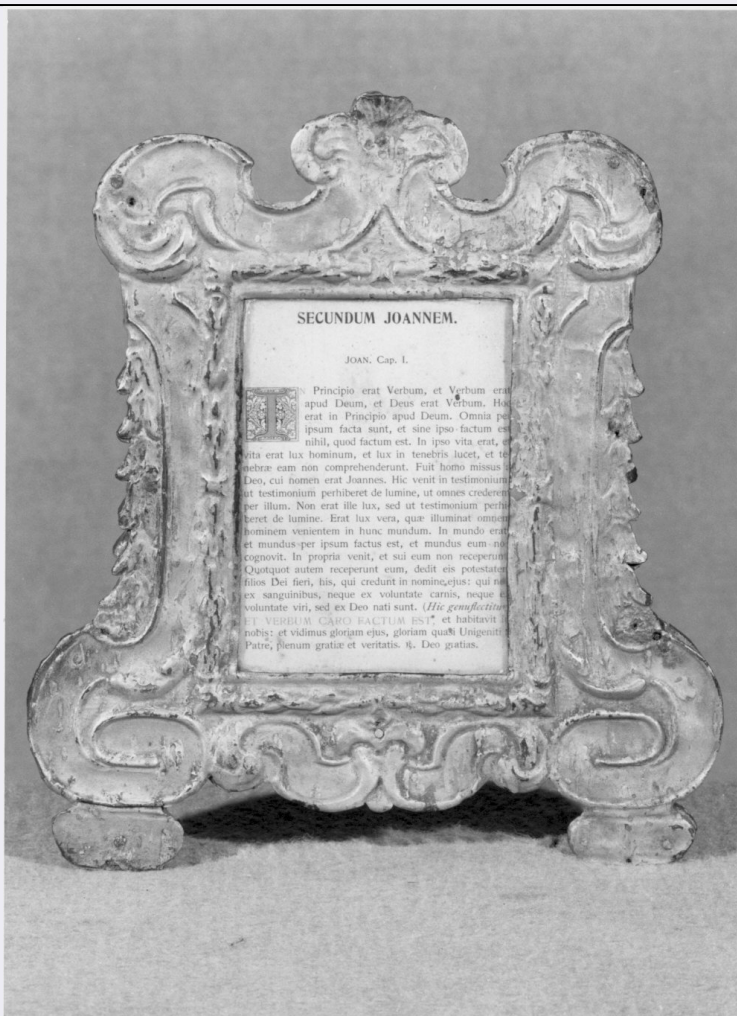 SECUNDUM JOANNEM.
JOAN. Cap. I.
IN Principio erat Verbum, et Verbum erat
apud Deum, et Deus erat Verbum. Hoc
erat in Principio apud Deum. Omnia pe
ipsum facta sunt, et sine ipso factum est
nihil, quod factum est. In ipso vita erat, e
vita erat lux hominum, et lux in tenebris lucet, et te
nebræ eam non comprehenderunt. Fuit homo missus a
Deo, cui nomen erat Joannes. Hic venit in testimonium
ut testimonium perhiberet de lumine, ut omnes crederen
per illum. Non erat ille lux, sed ut testimonium perhi
beret de lumine. Erat lux vera, quæ illuminat omnem
hominem venientem in hunc mundum. In mundo erat
et mundus per ipsum factus est, et mundus eum no
cognovit. In propria venit, et sui eum non receperun
Quotquot autem receperunt eum, dedit eis potestatem
filios Dei fieri, his, qui credunt in nomine ejus: qui no
ex sanguinibus, neque ex voluntate carnis, neque e
voluntate viri, sed ex Deo nati sunt. (Hic genuflectitur
ET VERBUM CARO FACTUM EST, et habitavit
nobis: et vidimus gloriam ejus, gloriam quasi Unigeniti
Patre, plenum gratiæ et veritatis. ℟. Deo gratias.